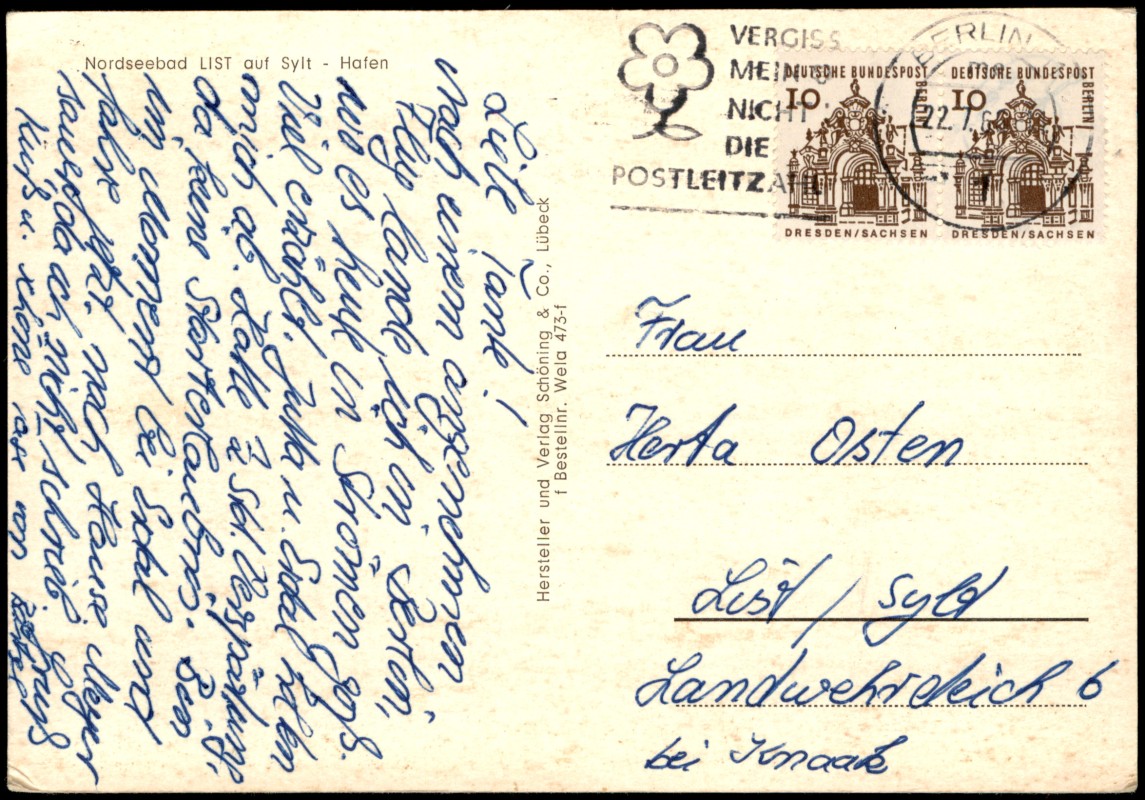 Nordseebad LIST auf Sylt - Hafen
Liebe Tante!
Nach einem angenehmen
Flug lande ich in Berlin,
wo es heute in Strömen goß.
Viel erzählt. Jutta u. holten
mich ab. Hatte Std. Verspätung,
da kein Starterlaubnis. Bin
im Moment bei und
fahre jetzt nach Hause. Meyer
sausida ich nicht schrieb. Es
Gruß
Kurt u. schöne von
Hersteller und Verlag Schöning & Co., Lübeck
f Bestellnr. Wela 473-f
VERGISS
MEIN
NICHT
DIE
POSTLEITZAHL
BERLIN
22.7.6
1
DEUTSCHE BUNDESPOST
BERLIN
10
DRESDEN/SACHSEN
DEUTSCHE BUNDESPOST
BERLIN
10
DRESDEN/SACHSEN
Frau
Herta Osten
List / Sylt
Landwehrdeich 6
bei Knaak